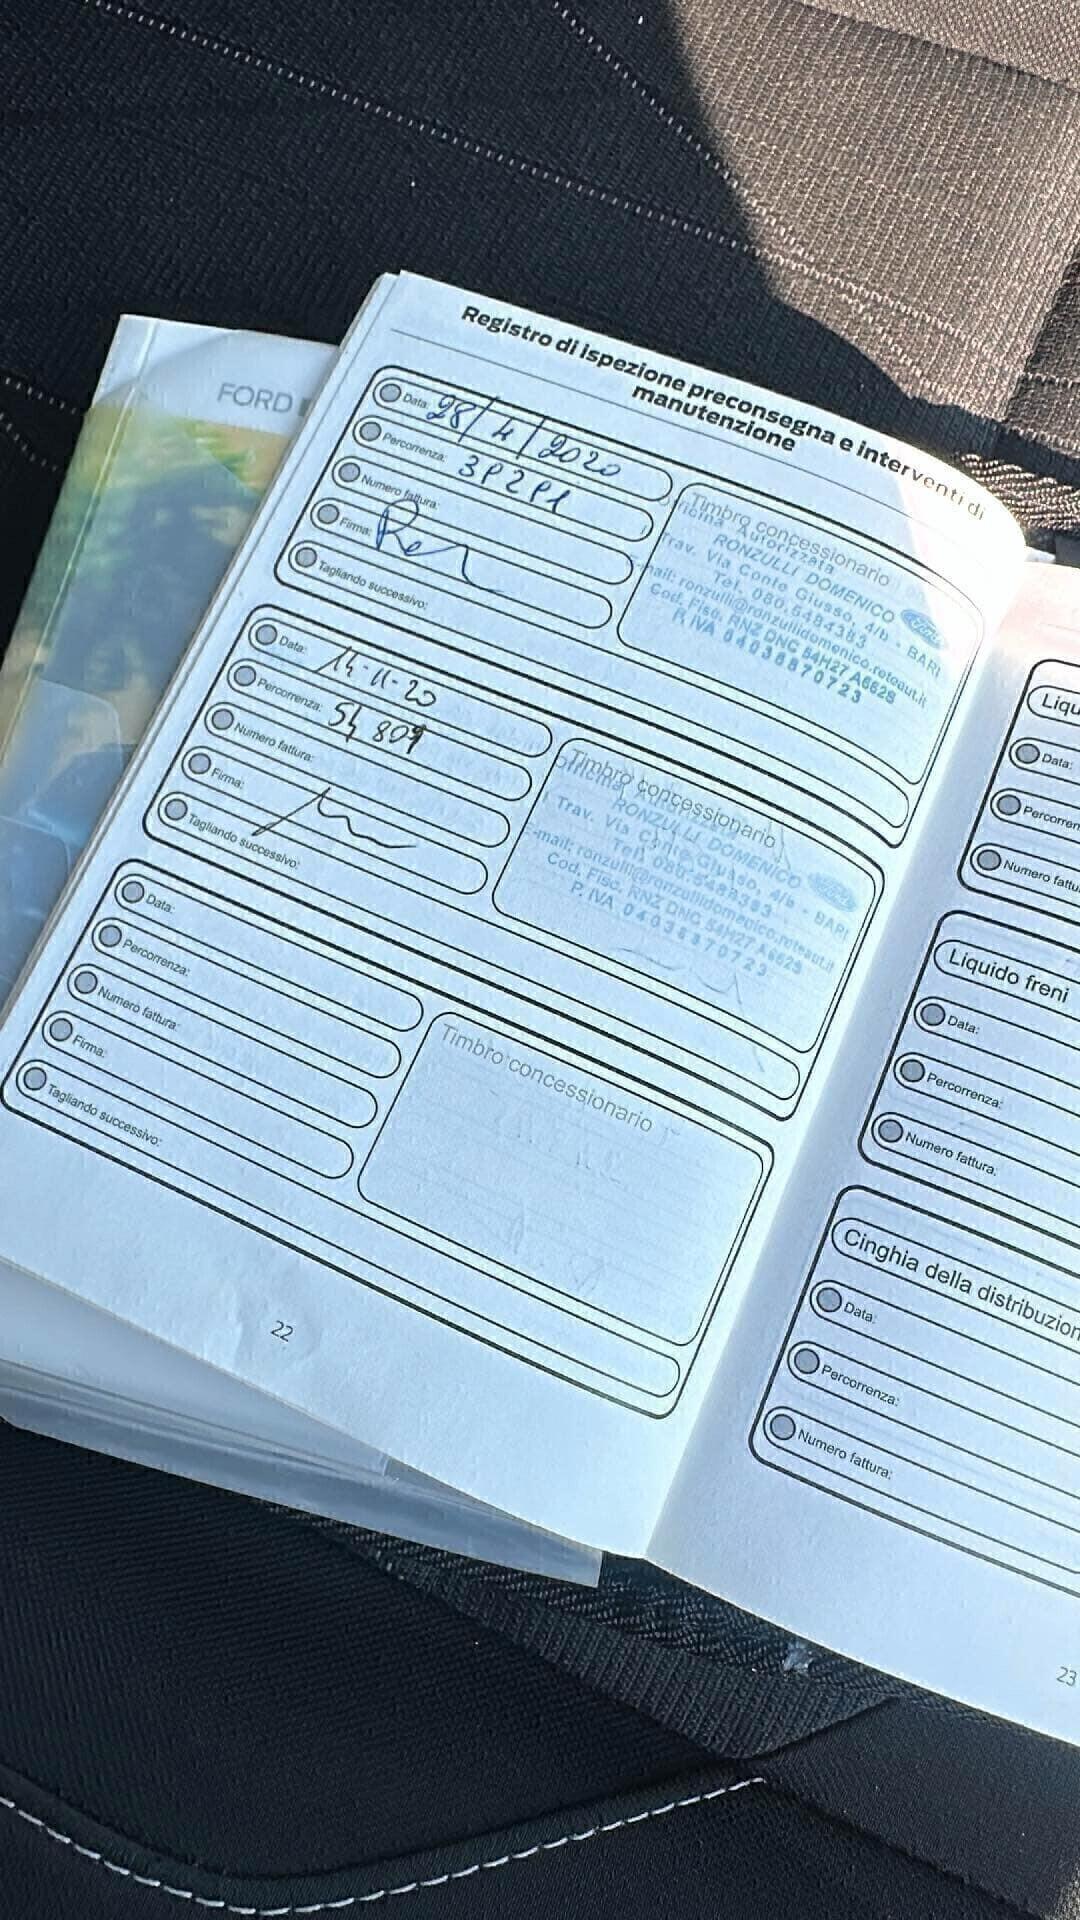 FORD
Registro di ispezione preconsegna e interventi di
manutenzione
Data: 28/4/2020
Percorrenza: 39291
Numero fattura:
Firma:
Tagliando successivo:
Timbro concessionario
Officina Autorizzata
RONZULLI DOMENICO
Trav. Via Conte Giusso, 4/b - BARI
Tel. 080.5484383
E-mail: ronzulli@ronzullidomenico.reteaut.it
Cod. Fisc. RNZ DNC 54H27 A662S
P. IVA 04038870723
Ford
Data: 14-11-20
Percorrenza: 54 809
Numero fattura:
Firma:
Tagliando successivo:
Timbro concessionario
Officina
RONZULLI DOMENICO
Trav. Via Giusso, 4/b - BARI
Tel.
E-mail: ronzulli@ronzullidomenico.reteaut.it
Cod. Fisc. RNZ DNC 54H27 A662S
P. IVA 04038870723
Data:
Percorrenza:
Numero fattura:
Firma:
Tagliando successivo:
Timbro concessionario
22
Data:
Liquido freni
Data:
Percorrenza:
Numero fattura:
Cinghia della
Data:
Percorrenza:
Numero fattura:
23